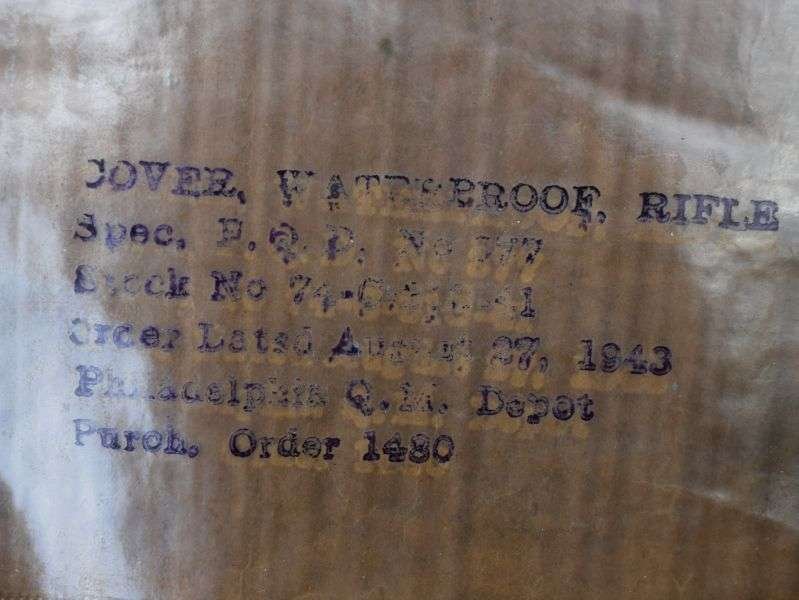 COVER, WATERPROOF, RIFLE
Spec. P.Q.D. No 377
Stock No
Order Dated August 27, 1943
Philadelphia Q.M. Depot
Purch. Order 1480